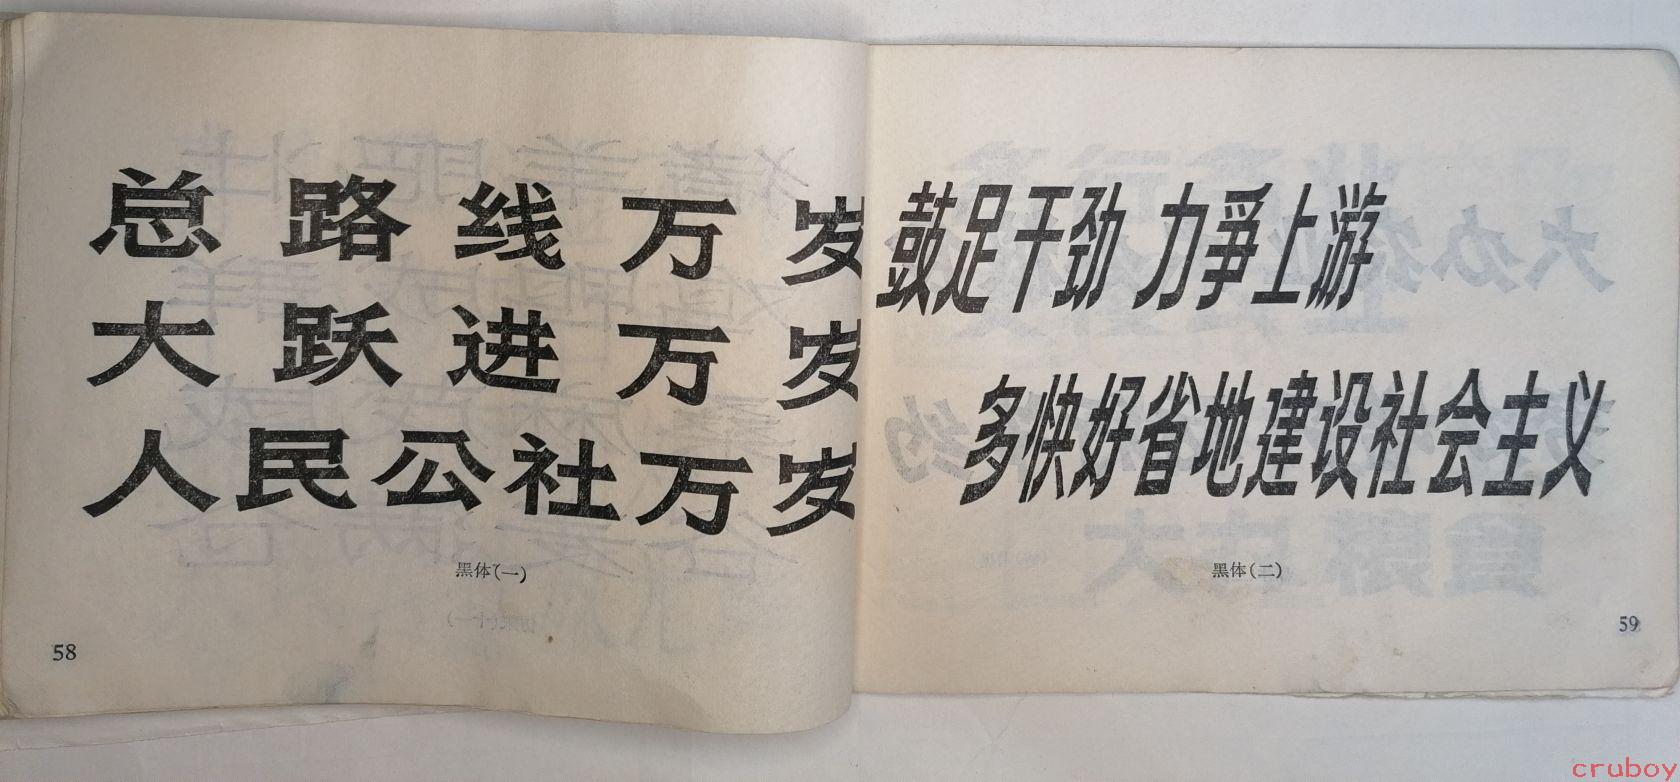 总路线万岁
大跃进万岁
人民公社万岁
黑体(一)
58
鼓足干劲 力爭上游
多快好省地建设社会主义
黑体(二)
59
cruboy